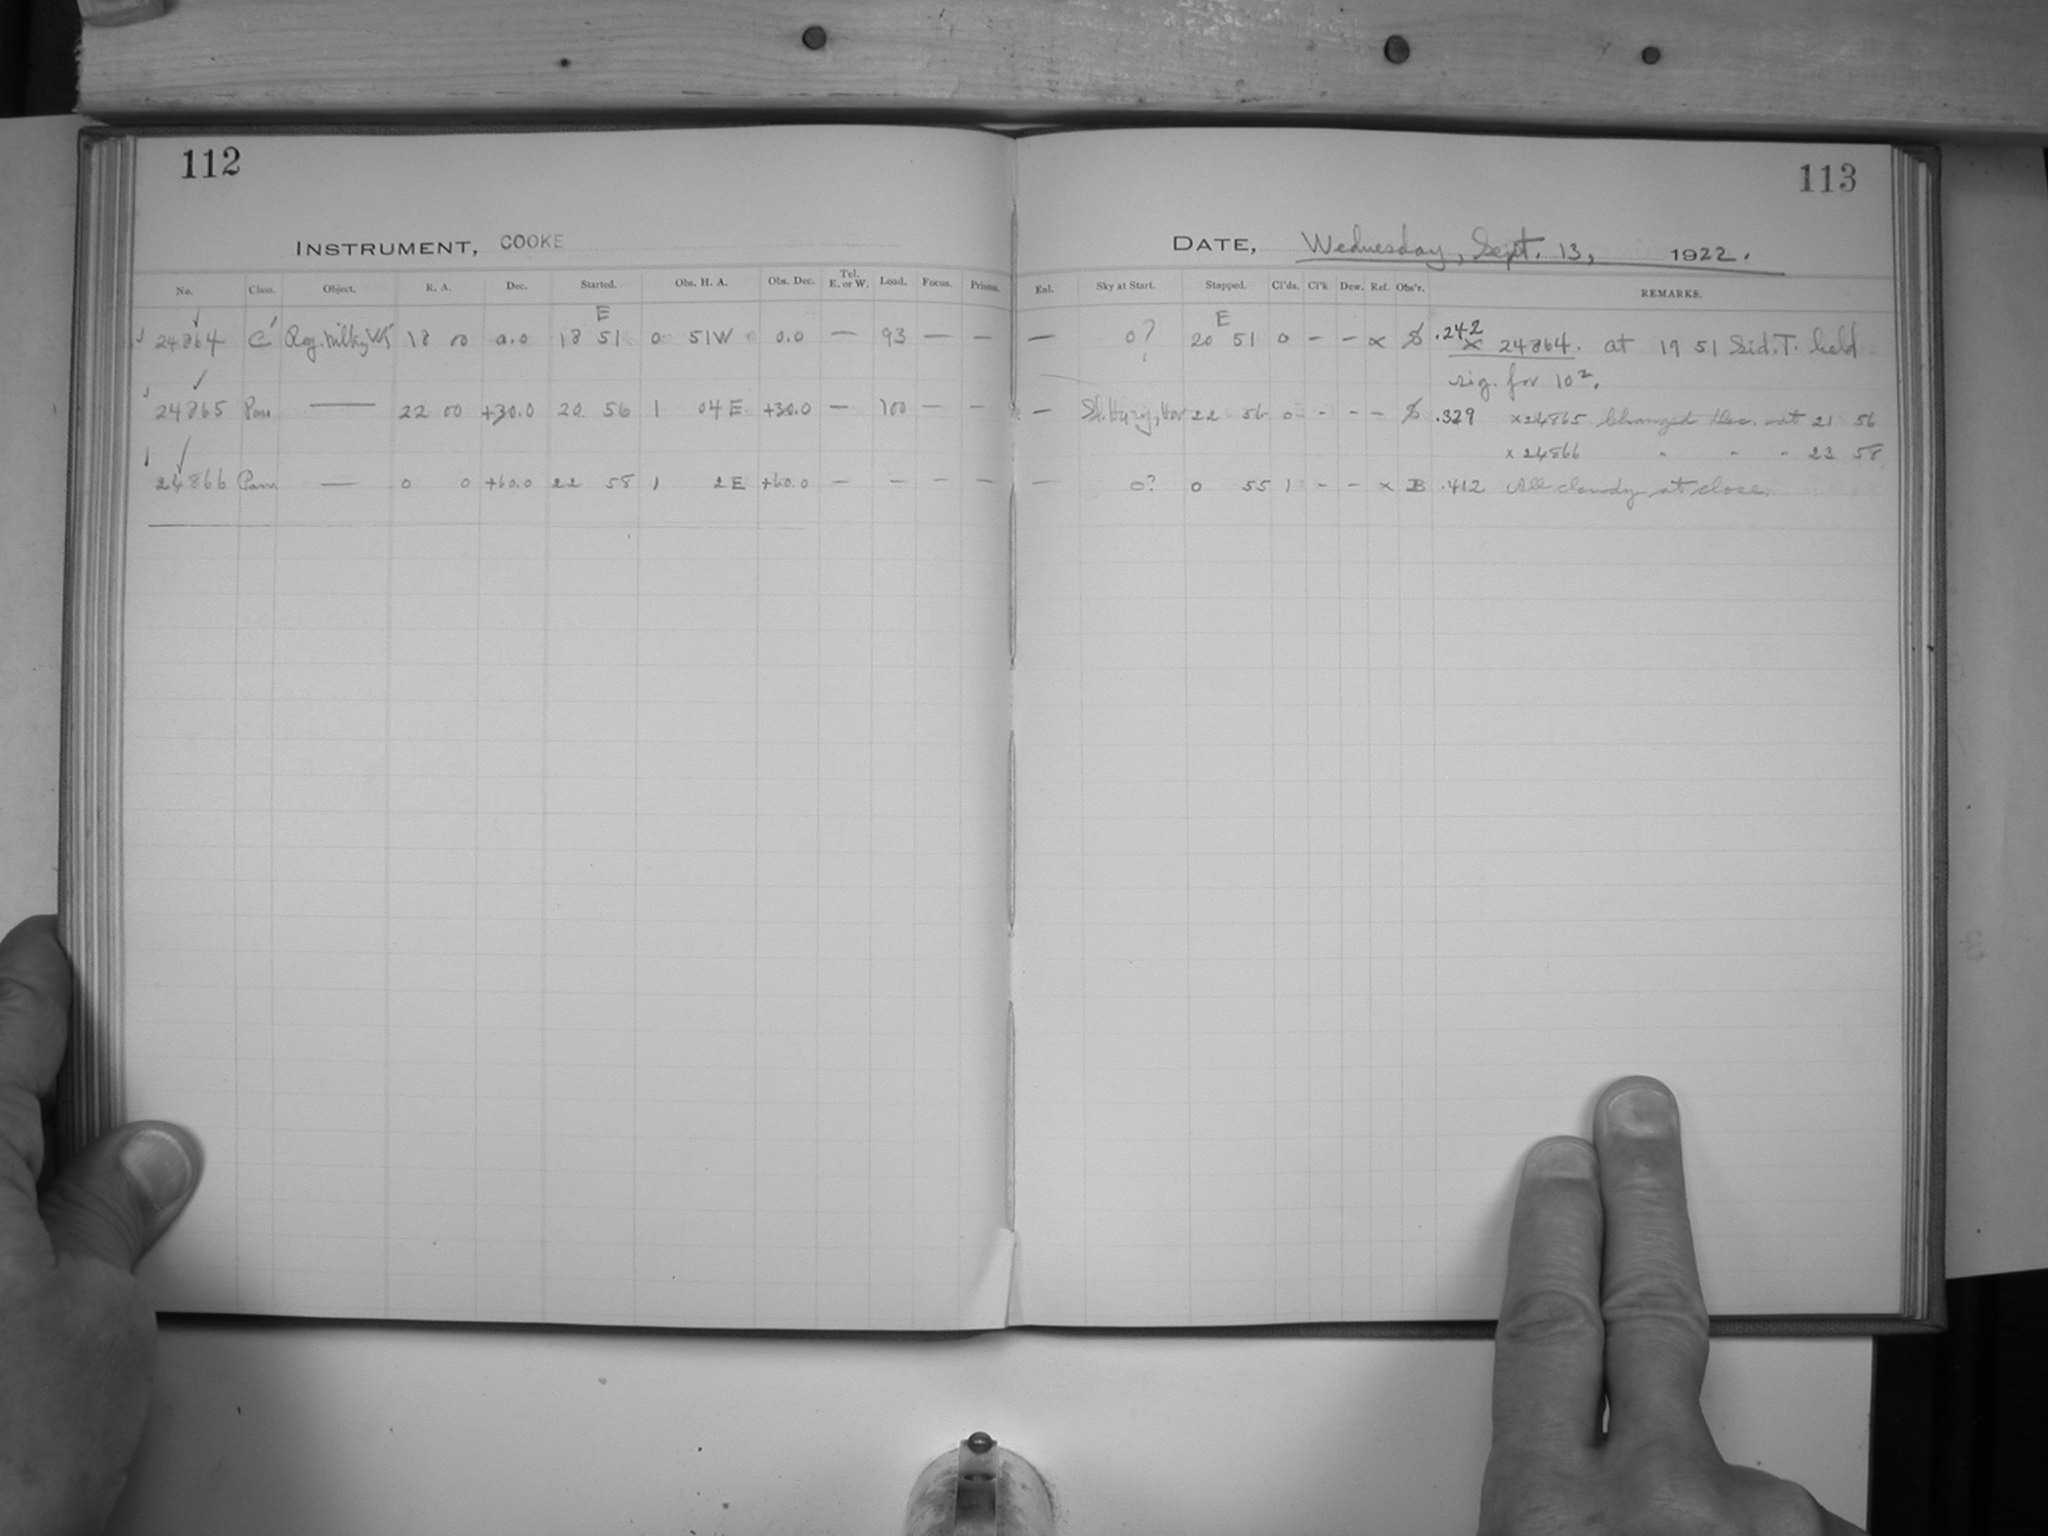 112
INSTRUMENT, COOKE
No. Class. Object. R. A. Dec. Started. Obs. H. A. Obs. Dec. Tel. E. or W. Load. Focus. Prisms.
E
24864 C Reg. Milky Wy 18 00 0.0 18 51 0 51W 0.0 — 93 — —
24865 Pan. — 22 00 +30.0 20 56 1 04 E +30.0 — 100 — —
24866 Pan. — 0 0 +60.0 22 58 1 2 E +60.0 — — — —
113
DATE, Wednesday, Sept. 13, 1922.
Enl. Sky at Start. Stopped. Cl'ds. Cl'k Dew. Ref. Obs'r. REMARKS.
E
— 0? 20 51 0 – – x .242 x 24864. at 19 51 Sid. T. held
rig. for 10
— 22 56 0 – – – .329 x24865 Changed Dec. at 21 56
x 24866 " " " 23 58
— 0? 0 55 1 – – x B .412 All cloudy at close.